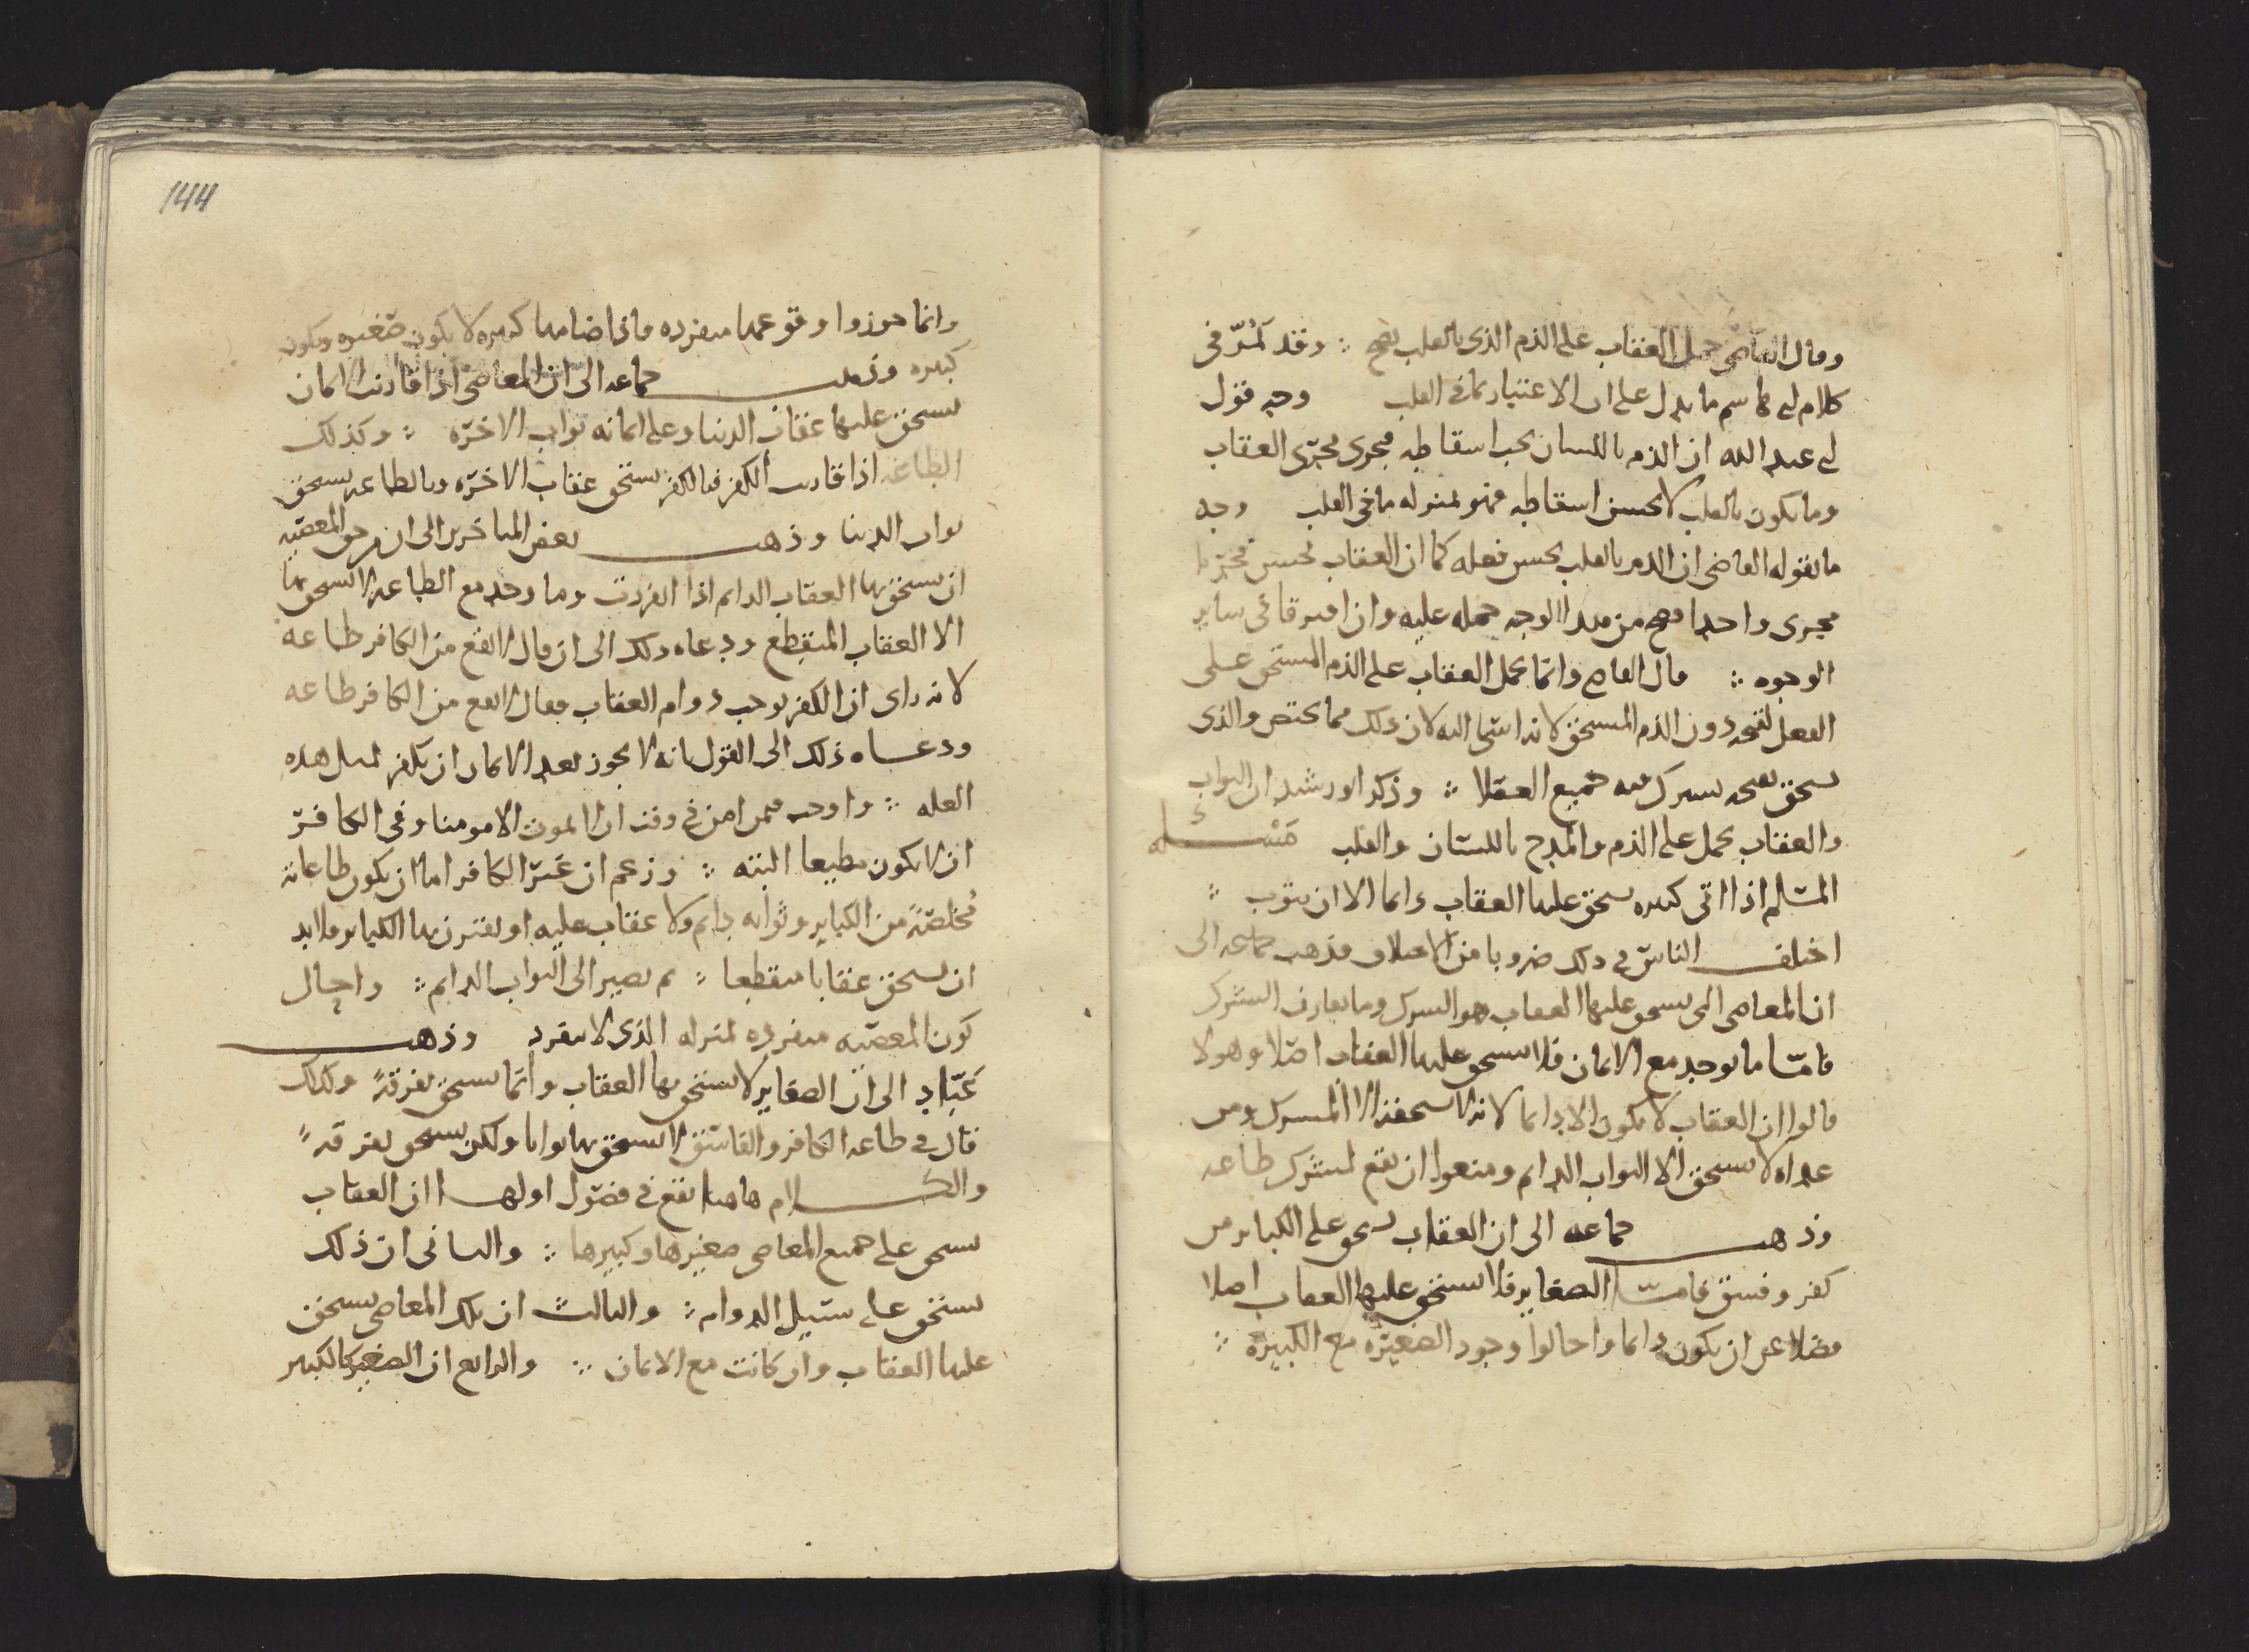 وقال القاضي حمل العقاب على الذم الذي بالقلب يصح ؞ وقد مر في
كلام ابي هاشم ما يدل على ان الاعتبار بما في القلب وجه قول
ابي عبد الله ان الذم باللسان يجب اسقاطه فجرى مجرى العقاب
وما يكون بالقلب لا يحسن اسقاطه فهو بمنزله ما في القلب وجه
ما يقوله القاضي ان الذم بالقلب يحسن فعله كما ان العقاب يحسن فجريا
مجرى واحدا فصح من هذا الوجه حمله عليه وان افترقا في ساير
الوجوه ؞ قال القاضي وانما يحمل العقاب على الذم المستحق على
الفعل لقبحه دون الذم المستحق لانه اسا اليه لان ذلك مما يختص والذي
يستحق لقبحه يشترك فيه جميع العقلا ؞ وذكر ابو رشيد ان الثواب
والعقاب يحمل على الذم والمدح باللسان والقلب مسئله
المسلم اذا اتى كبيره يستحق عليها العقاب دايما الا ان يتوب ؞
اختلف الناس في ذلك ضروبا من الاختلاف فذهب جماعه الى
ان المعاصي التي يستحق عليها العقاب هو الشرك وما يقارن الشرك
فاما ما يوجد مع الايمان فلا يستحق عليها العقاب اصلا وهولا
قالوا ان العقاب لا يكون الا دايما لانه لا يستحقه الا المشرك ومن
عداه لا يستحق الا الثواب الدايم ومنعوا ان يقع لمشرك طاعه
وذهب جماعه الى ان العقاب يستحق على الكباير من
كفر وفسق فاما الصغاير فلا يستحق عليها العقاب اصلا
فضلا عن ان يكون دايما واحالوا وجود الصغيره مع الكبيره ؞
144
وانما جوزوا وقوعها منفرده فاذا ضامها كبيره لا يكون صغيره ويكون
كبيره وذهب جماعه الى ان المعاصي اذا قارنت الايمان
يستحق عليها عقاب الدنيا وعلى ايمانه ثواب الاخره ؞ وكذلك
الطاعه اذا قارنت الكفر فبالكفر يستحق عقاب الاخره وبالطاعه يستحق
ثواب الدنيا وذهب بعض المتاخرين الى ان من حق المعصيه
ان يستحق بها العقاب الدايم اذا انفردت وما وجد مع الطاعه لا يستحق بها
الا العقاب المنقطع ودعاه ذلك الى ان قال لا تقع من الكافر طاعه
لانه راى ان الكفر يوجب دوام العقاب فقال لا تقع من الكافر طاعه
ودعاه ذلك الى القول بانه لا يجوز بعد الايمان ان يكفر لمثل هذه
العله ؞ واوجب فيمن امن في وقت ان لا يموت الا مومنا وفي الكافر
ان لا يكون مطيعا البته ؞ وزعم ان غير الكافر اما ان يكون طاعاته
مخلصة من الكباير وثوابه دايم ولا عقاب عليه او يقترن بها الكباير فلا بد
ان يستحق عقابا منقطعا ؞ ثم يصير الى الثواب الدايم ؞ واحال
كون المعصيه منفرده لمنزله الذي لا ينفرد وذهب
عباد الى ان الصغاير لا يستحق بها العقاب وانما يستحق تفرقةً وكذلك
قال في طاعه الكافر والفاسق لا يستحق بها ثوابا ولكن يستحق تفرقةً
والكلام هاهنا يقع في فصول اولها ان العقاب
يستحق على جميع المعاصي صغيرها وكبيرها ؞ والثاني ان ذلك
يستحق على سبيل الدوام ؞ والثالث ان تلك المعاصي يستحق
عليها العقاب وان كانت مع الايمان ؞ والرابع ان الصغير كالكبير